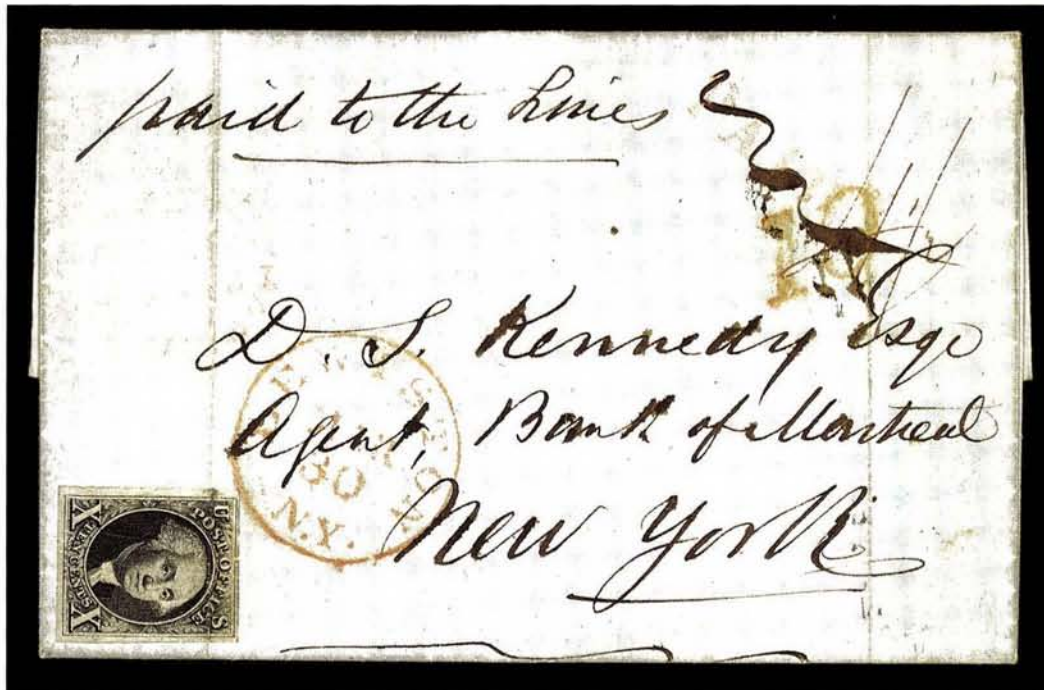 paid to the Lines
10
D. S. Kennedy Esqr
Agent, Bank of Montreal
30
N.Y.
New York
U S
POST OFFICE
X X